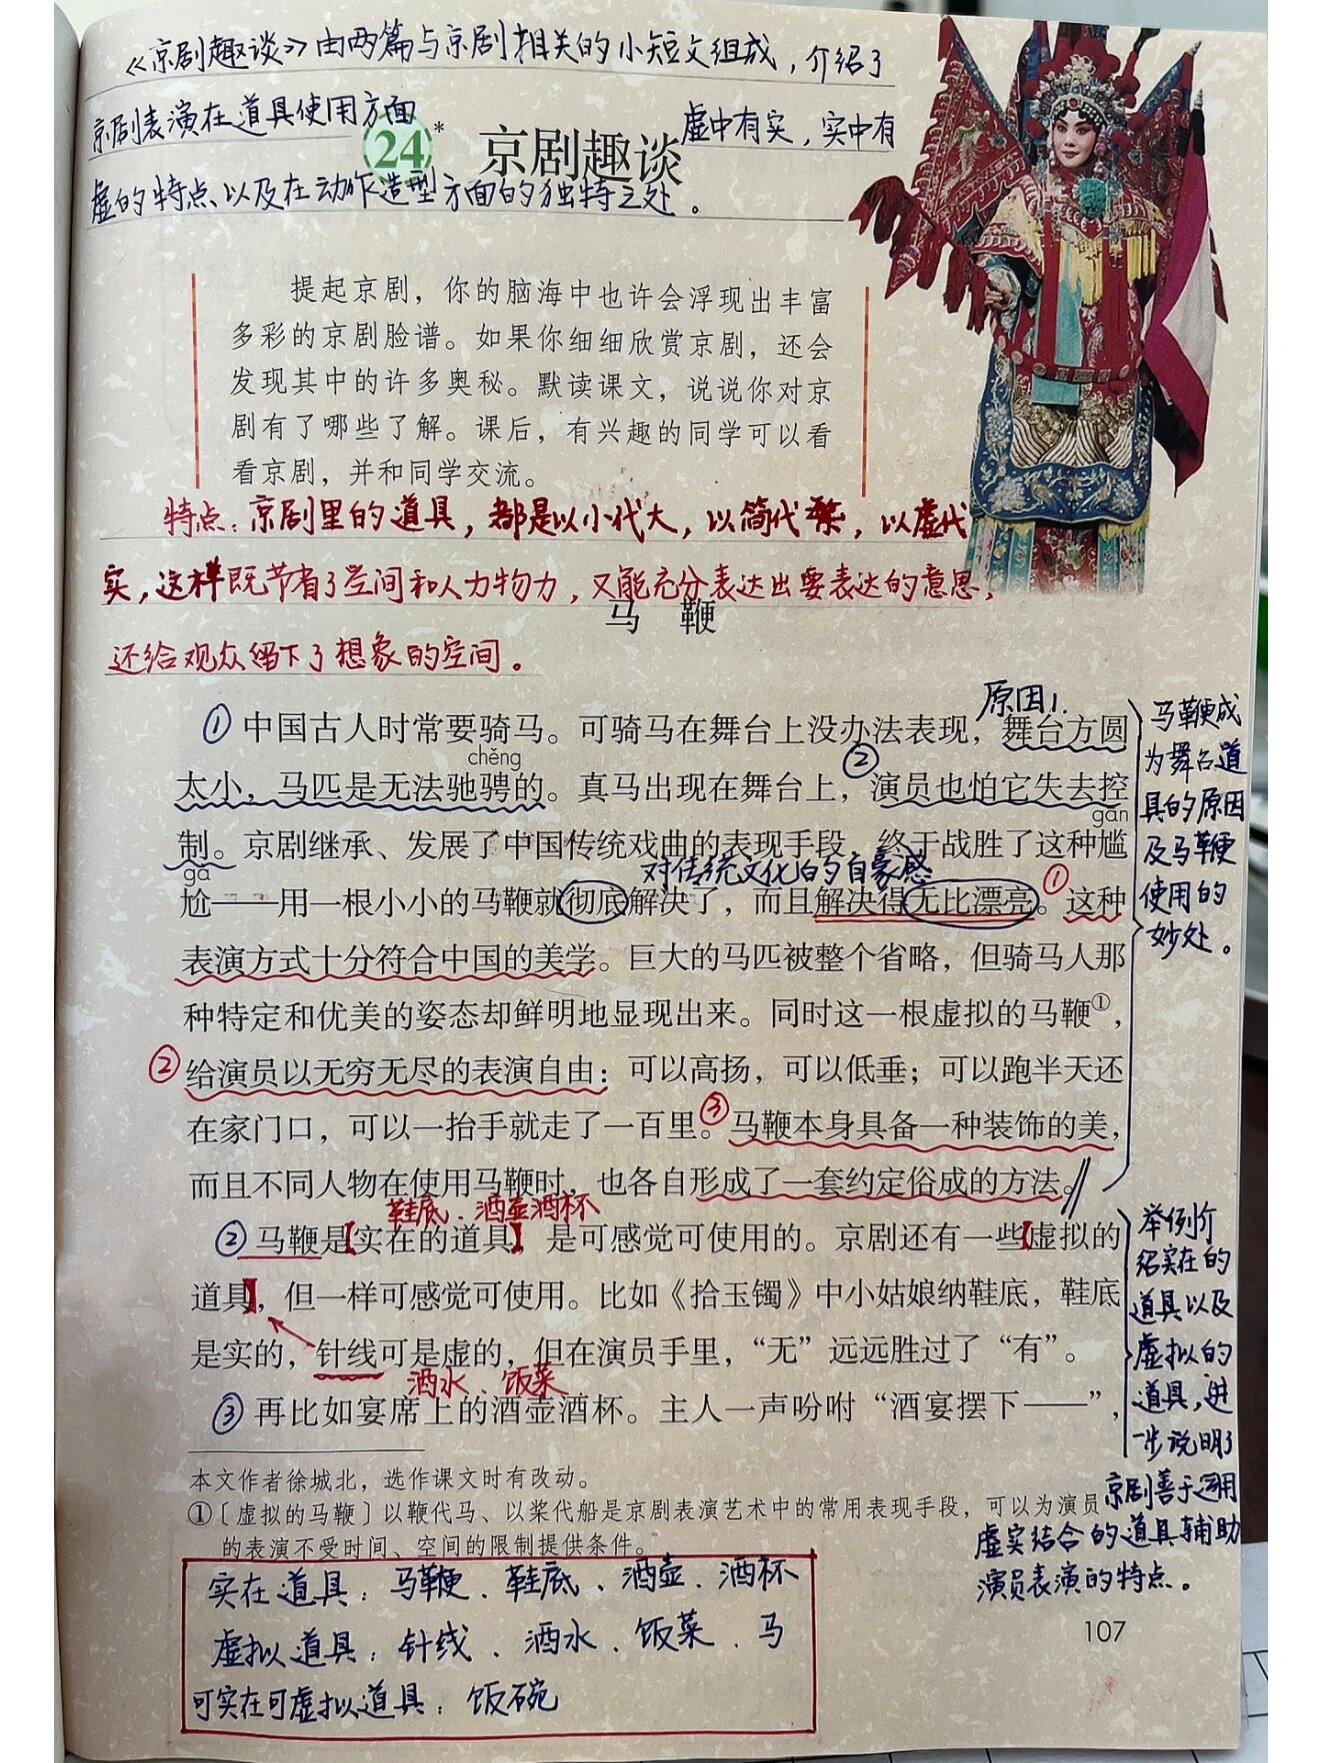 《京剧趣谈》由两篇与京剧相关的小短文组成，介绍了
京剧表演在道具使用方面
虚中有实，实中有
24* 京剧趣谈
虚的特点以及在动作造型方面的独特之处。
提起京剧，你的脑海中也许会浮现出丰富
多彩的京剧脸谱。如果你细细欣赏京剧，还会
发现其中的许多奥秘。默读课文，说说你对京
剧有了哪些了解。课后，有兴趣的同学可以看
看京剧，并和同学交流。
特点：京剧里的道具，都是以小代大，以简代繁，以虚代
实，这样既节省了空间和人力物力，又能充分表达出要表达的意思，
马 鞭
还给观众留下了想象的空间。
原因1.
①中国古人时常要骑马。可骑马在舞台上没办法表现，舞台方圆
chěng
②
太小，马匹是无法驰骋的。真马出现在舞台上，演员也怕它失去控
gān
制。京剧继承、发展了中国传统戏曲的表现手段，终于战胜了这种尴
gà
对传统文化的自豪感
尬——用一根小小的马鞭就彻底解决了，而且解决得无比漂亮。①这种
表演方式十分符合中国的美学。巨大的马匹被整个省略，但骑马人那
种特定和优美的姿态却鲜明地显现出来。同时这一根虚拟的马鞭①，
②给演员以无穷无尽的表演自由：可以高扬，可以低垂；可以跑半天还
在家门口，可以一抬手就走了一百里。③马鞭本身具备一种装饰的美，
而且不同人物在使用马鞭时，也各自形成了一套约定俗成的方法。
鞋底、酒壶酒杯
②马鞭是【实在的道具】，是可感觉可使用的。京剧还有一些【虚拟的
道具】，但一样可感觉可使用。比如《拾玉镯》中小姑娘纳鞋底，鞋底
是实的，针线可是虚的，但在演员手里，“无”远远胜过了“有”。
酒水、饭菜
③再比如宴席上的酒壶酒杯。主人一声吩咐“酒宴摆下——”，
马鞭成
为舞台道
具的原因
及马鞭
使用的
妙处。
举例介
绍实在的
道具以及
虚拟的
道具，进
一步说明了
京剧善于运用
虚实结合的道具辅助
演员表演的特点。
本文作者徐城北，选作课文时有改动。
①〔虚拟的马鞭〕以鞭代马、以桨代船是京剧表演艺术中的常用表现手段，可以为演员
的表演不受时间、空间的限制提供条件。
实在道具：马鞭、鞋底、酒壶、酒杯
虚拟道具：针线、酒水、饭菜、马
可实在可虚拟道具：饭碗
107